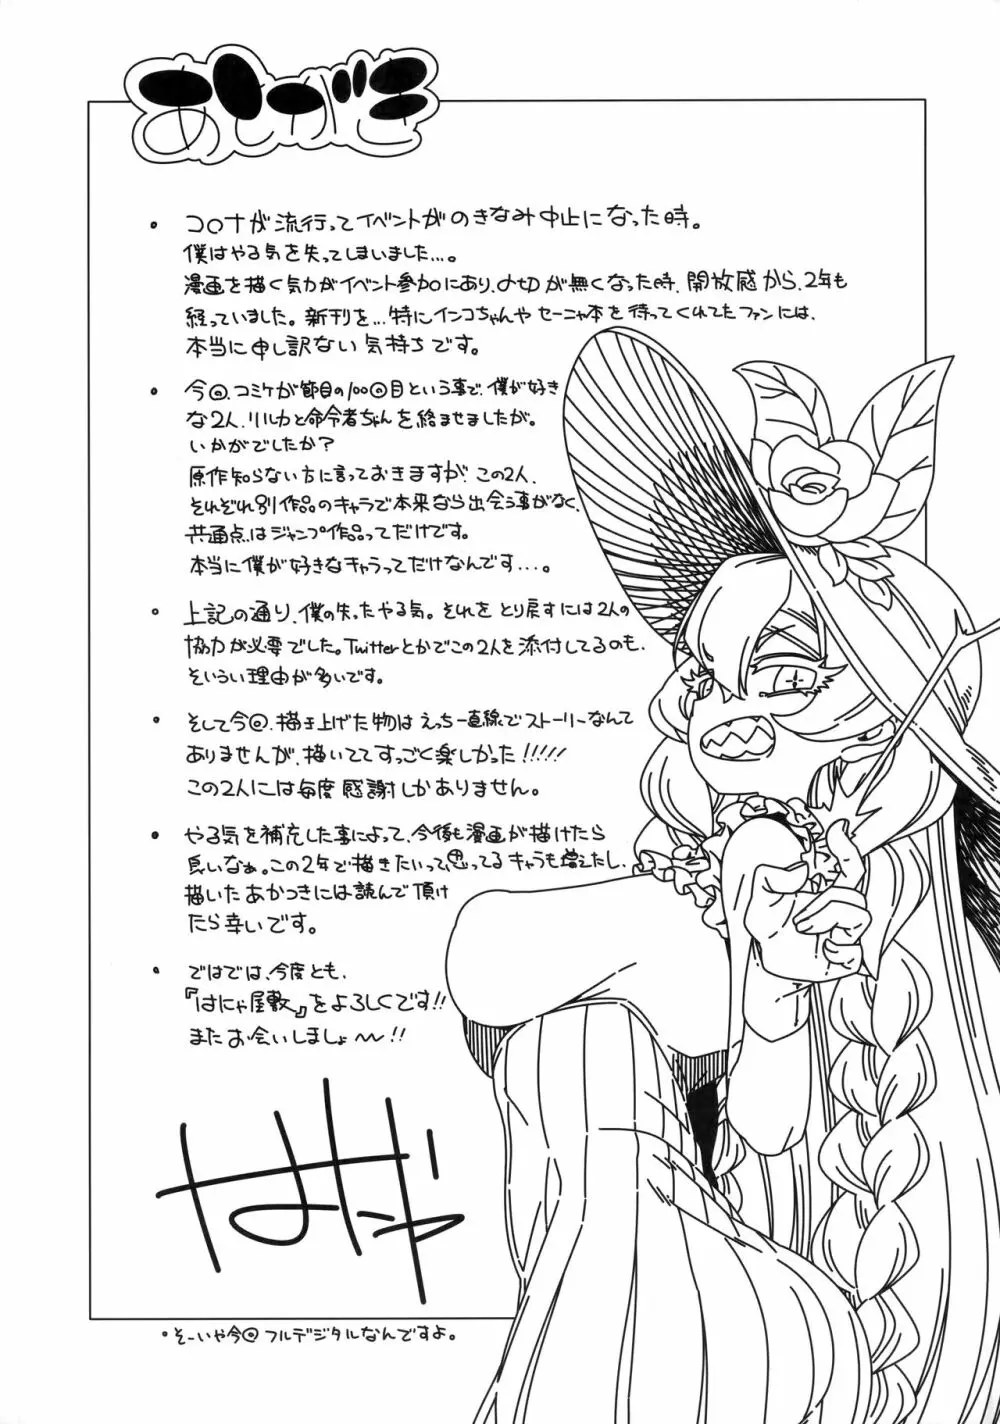 あとがき
・コロナが流行ってイベントがのきなみ中止になった時。
僕はやる気を失ってしまいました…。
漫画を描く気力がイベント参加にあり、〆切が無くなった時、開放感から、2年も
経っていました。新刊を…特にインコちゃんやセーニャ本を待ってくれてたファンには、
本当に申し訳ない気持ちです。
・今回、コミケが節目の100回目という事で、僕が好き
な2人、リルカと命令者ちゃんを絡ませましたが。
いかがでしたか？
原作知らない方に言っておきますが、この2人、
それぞれ別作品のキャラで本来なら出会う事がなく、
共通点はジャンプ作品ってだけです。
本当に僕が好きなキャラってだけなんです…。
・上記の通り、僕の失ったやる気。それをとり戻すには2人の
協力が必要でした。Twitterとかでこの2人を添付してるのも、
そいういう理由が多いです。
・そして今回、描き上げた物はえっち一直線でストーリーなんて
ありませんが、描いててすっごく楽しかった!!!!!
この2人には毎度感謝しかありません。
・やる気を補充した事によって、今後も漫画が描けたら
良いなぁ。この2年で描きたいって思ってるキャラも増えたし、
描いたあかつきには読んで頂け
たら幸いです。
・ではでは、今度とも、
『はにゃ屋敷』をよろしくです!!
またお会いしましょ〜!!
はにゃ
・そーいや今回フルデジタルなんですよ。